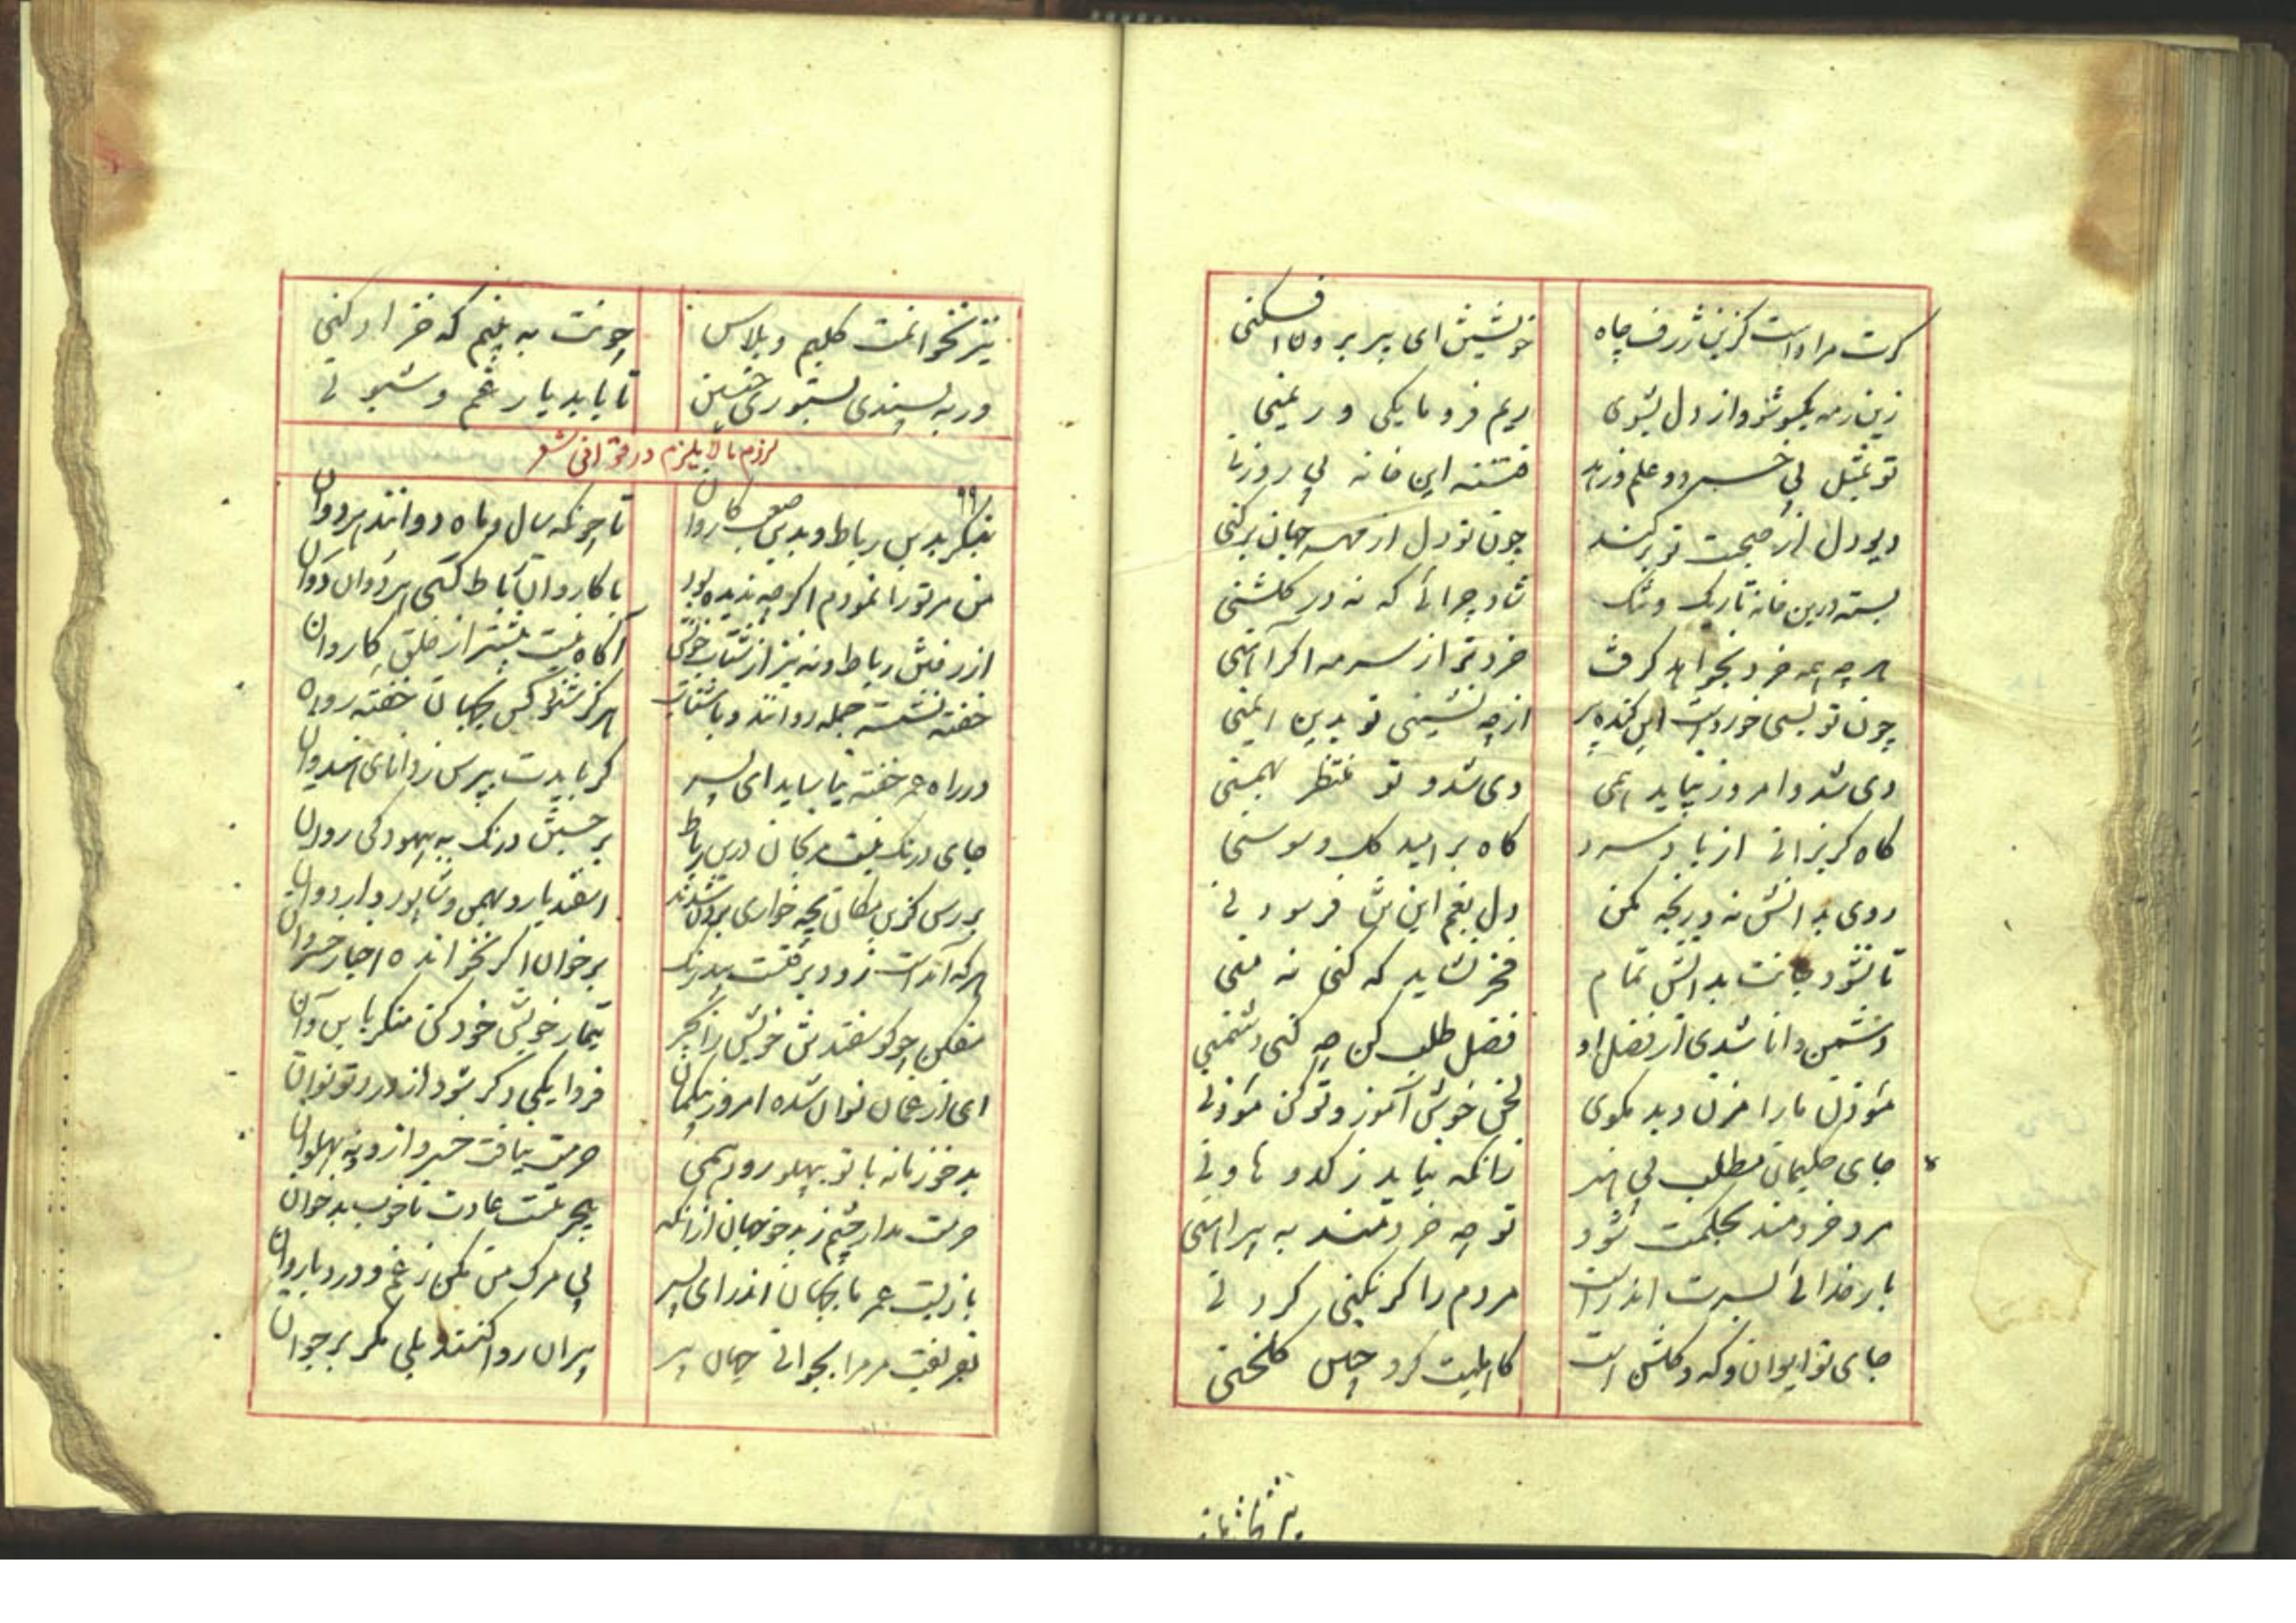 کرت مراد است کزین ژرف چاه خویشتن ای پیر برون افکنی
زین رمه یکسو شو و از دل بشوی ریم فرومایکی و ریمنی
تو بمثل بی خبر و علم و زهد فتنه این خانه بی روزنی
دیو دل از صحبت تو برکند چون تو دل از مهر جهان برکنی
بسته درین خانه تاریک و تنک شاد چرائی که نه در کلشنی
هر چه همه خرد بخواهد کرفت خردتر از سرمه اکر آهنی
چون تو بسی خورد است این کنده پیر از چه نشینی تو بدین ایمنی
دی شد و امروز نپاید همی دی شد و تو منتظر بهمنی
کاه کریزانی از باد سرد کاه بر امید کل و سوسنی
روی بدانش نه و رنجه مکن دل بغم این تن فرسودنی
تا نشود جانت بدانش تمام فخر نشاید که کنی نه منی
دشمن دانا شدی از فضل او فضل طلب کن چه کنی دشمنی
مؤذن ما را مزن و بد مکوی لحن خوش آموز و تو کن مؤذنی
جای حکیمان مطلب بی هنر زانکه نیاید ز کدو هاونی
مرد خردمند بحکمت شود تو چه خردمند به پیراهنی
بار خدائی بسرت اندر است مردم را کر نکنی کردنی
جای تو ایوان و که و کلشن است کاهلیت کرد چنین کلخنی
نیز نخوانمت کلیم و پلاس چونت به بینم که خز ادکنی
ور به پسندی بستوری چنین تا باید یار غم و شیونی
لزوم مالایلزم در قوافی شعر
۹۹
بنکر بدین رباط و بدین صعب کاروان تا چونکه سال و ماه دوانند هر دوان
من مر تو را نمودم اکر چه ندیده بود با کاروان رباط کسی هر دوان دوان
از رفتن رباط و نه نیز از شتاب خویش آکاه نیست بیشتر از خلق کاروان
خفته نشسته جمله روانند و باشتاب هرکز شنید کس بجهان خفته رونده
در راه عمر خفته نیاساید ای پسر کر بایدت بپرس ز دانای هندوان
جای درنک نیست مرنجان درین رباط بر جستن درنک به بیهودکی روان
بررس کزین مکان بچه خواری برون شدند اسفندیار و بهمن و شاپور و اردوان
هر که آمد است زود برفتست بیدرنک برخوان اکر نخوانده اخبار خسروان
مفکن چو کوسفند تن خویش را بجر تیمار خویش خود کن منکر باین و آن
ای از غمان نوان شده امروز بیکمان فردا یکی دکر شود از درد تو نوان
بدخو زمانه با تو بپهلو رود همی حرمت نیافت خسرو ازو و نه پهلوان
حرمت مدار چشم ز بدخو جهان ازانکه بیحرمتیست عادت ناخوب بدخوان
بازیست عمر ما بجهان اندر ای پسر بی مرک من مکن ز غم و درد باروان
بفریفت مر مرا بجوانی جهان پیر پیران روا کنند بلی مکر بر جوان